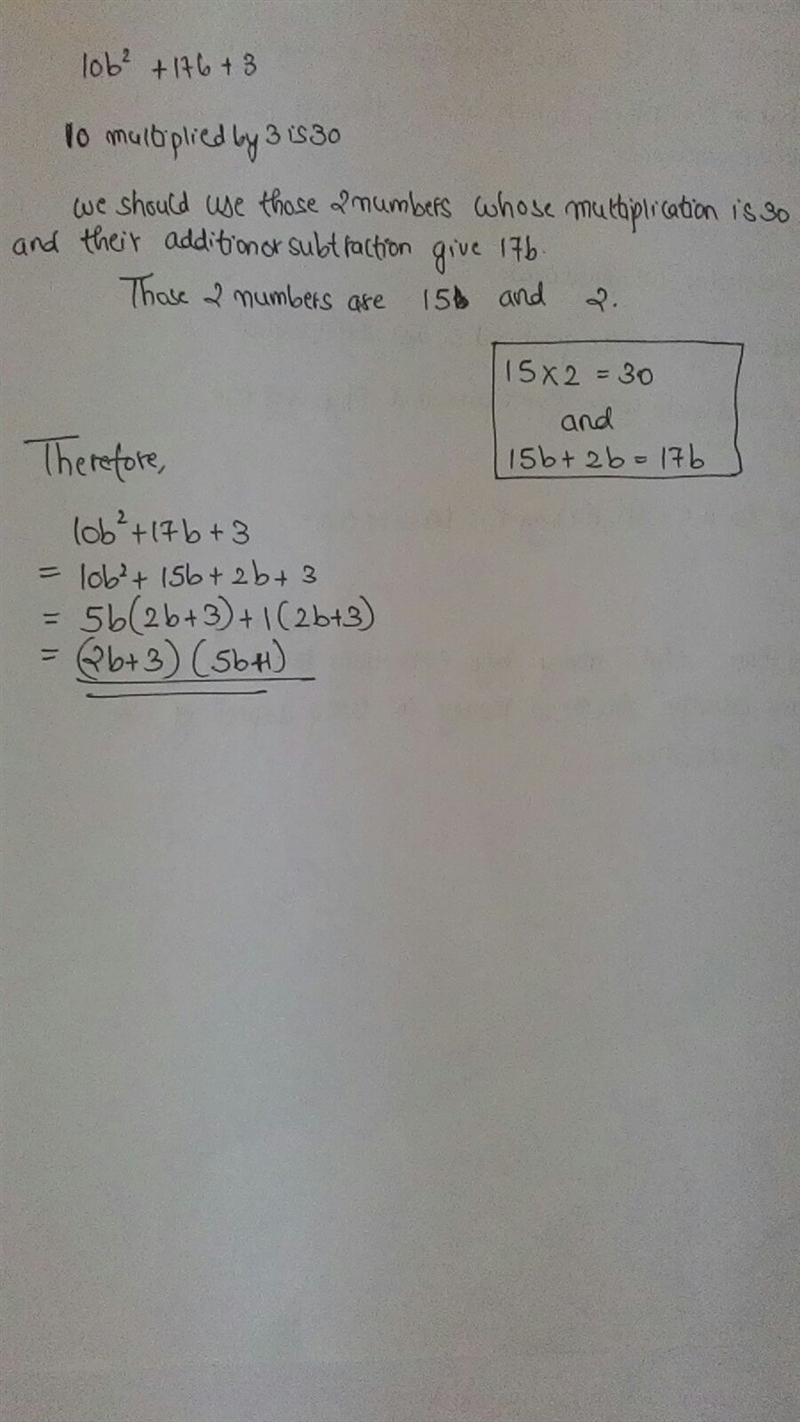 10b² + 17b + 3
10 multiplied by 3 is 30
we should use those 2 numbers whose multiplication is 30
and their addition or subtraction give 17b.
Those 2 numbers are 15b and 2.
15 × 2 = 30
and
15b + 2b = 17b
Therefore,
10b² + 17b + 3
= 10b² + 15b + 2b + 3
= 5b(2b+3) + 1(2b+3)
= (2b+3) (5b+1)